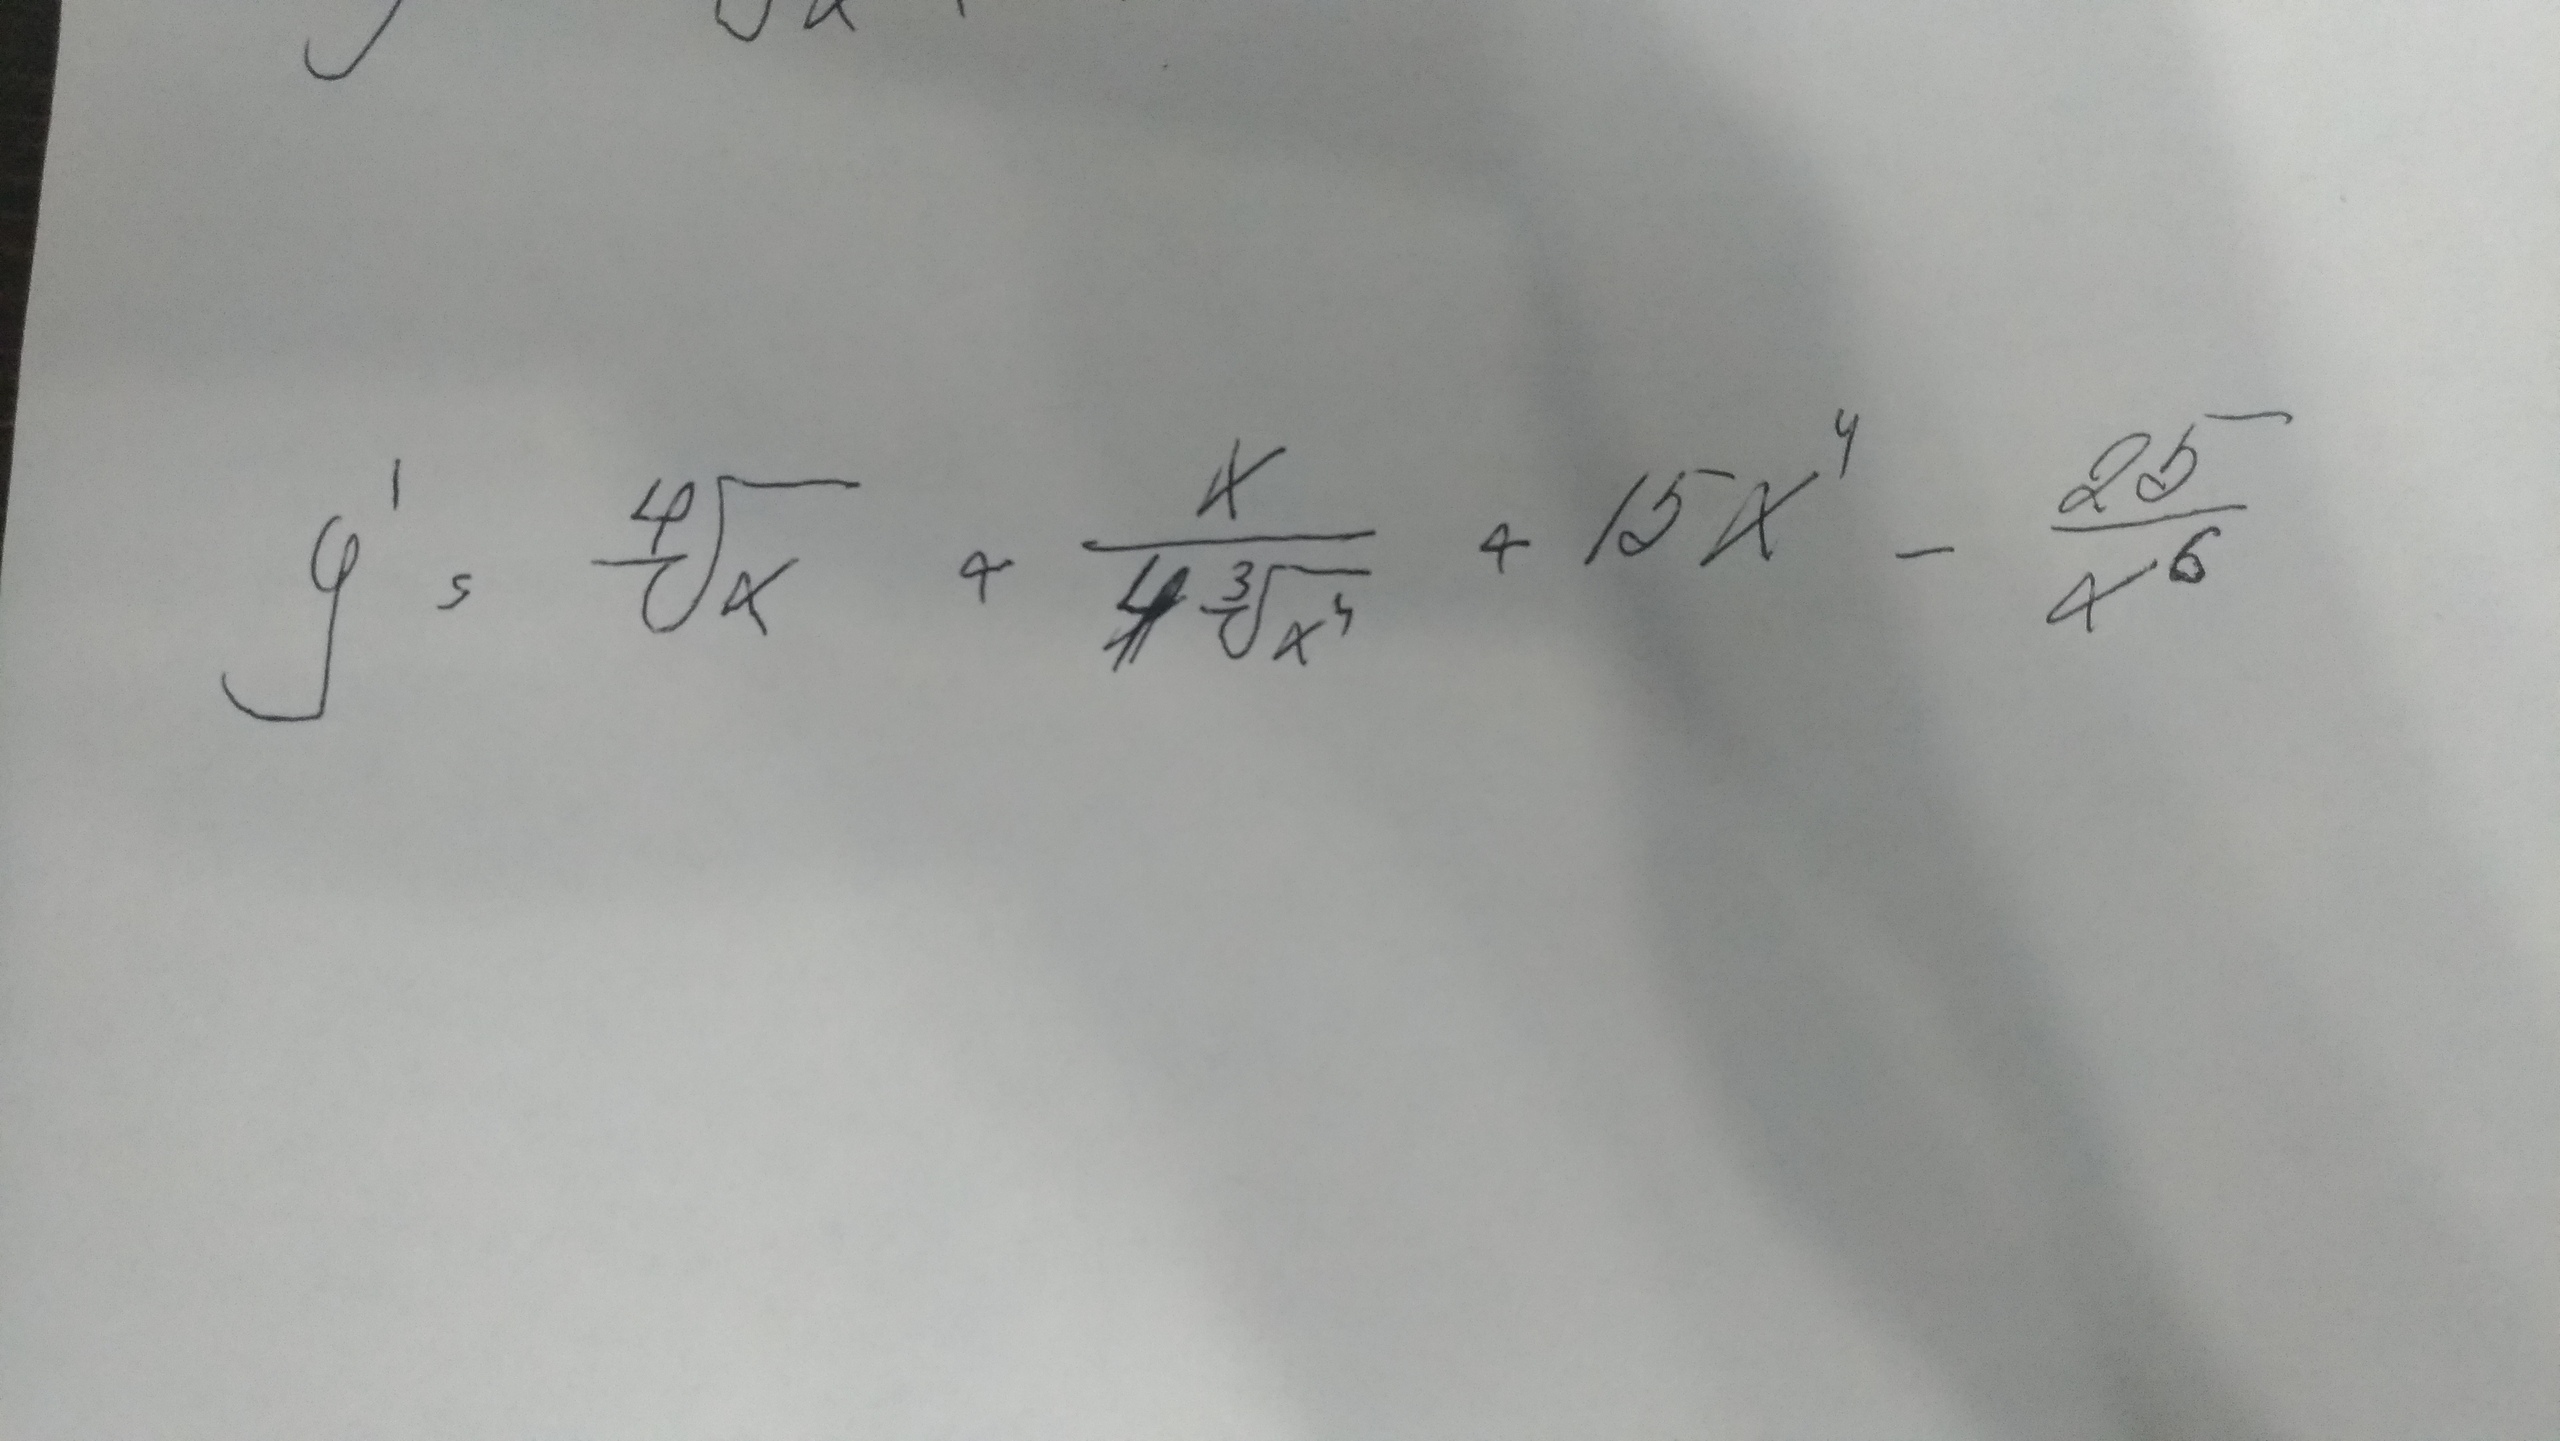 y' = ∜x + x / (4 ∛x⁴) + 15x⁴ - 25 / x⁶